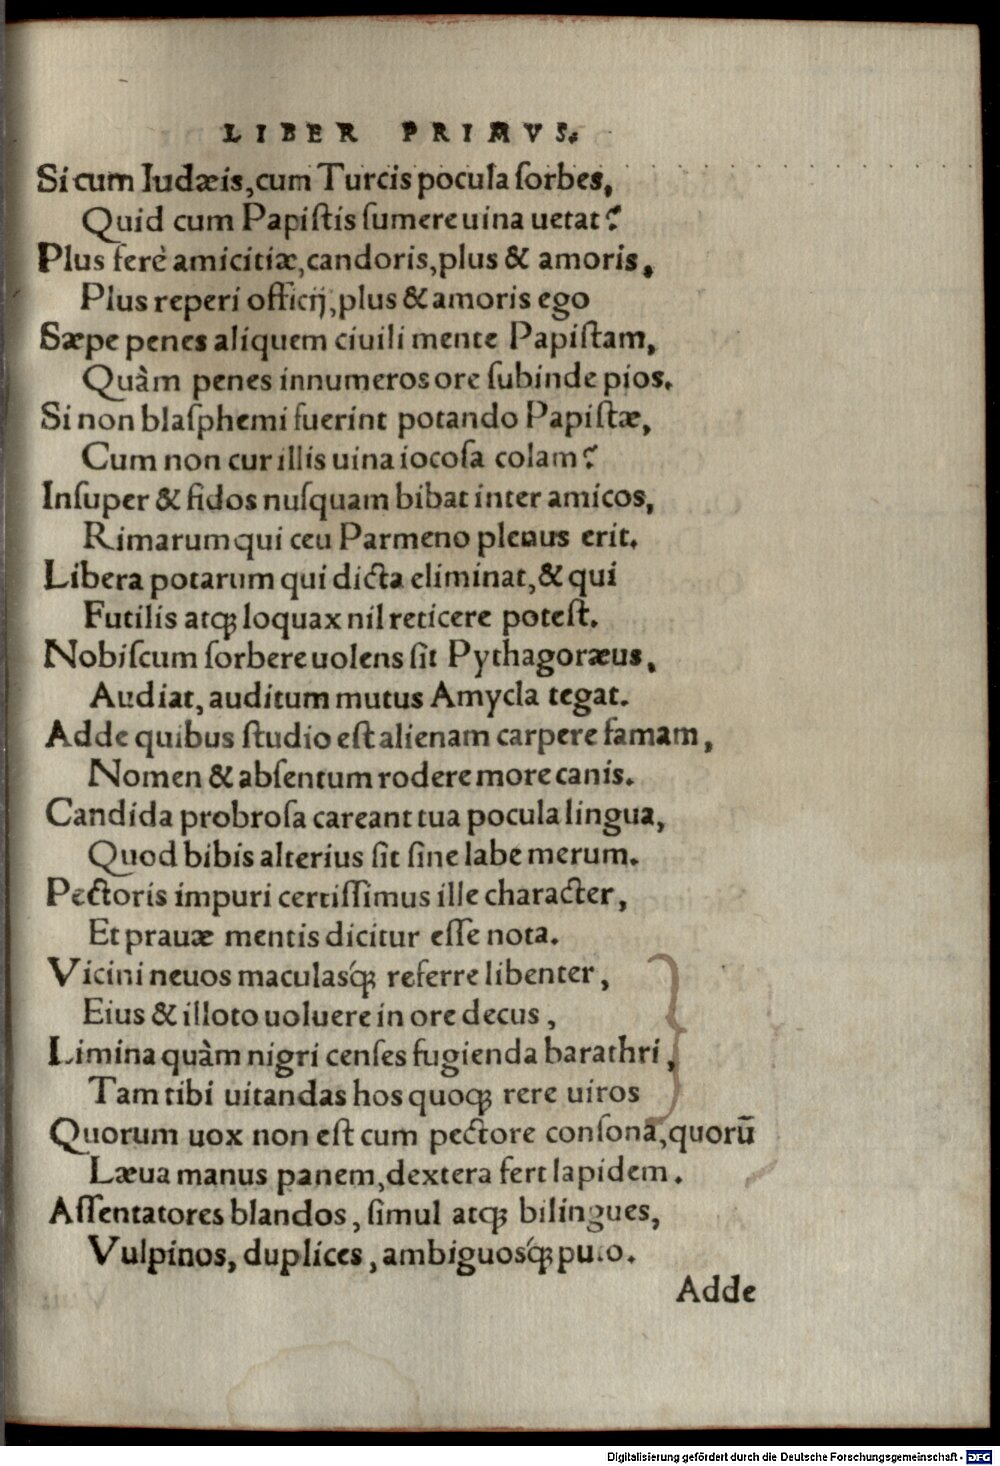 LIBER PRIMVS.
Si cum Iudæis, cum Turcis pocula ſorbes,
Quid cum Papiſtis ſumere uina uetat?
Plus ferè amicitiæ, candoris, plus & amoris,
Plus reperi officij, plus & amoris ego
Sæpe penes aliquem ciuili mente Papiſtam,
Quàm penes innumeros ore ſubinde pios.
Si non blaſphemi fuerint potando Papiſtæ,
Cum non cur illis uina iocoſa colam?
Inſuper & fidos nuſquam bibat inter amicos,
Rimarum qui ceu Parmeno plenus erit.
Libera potarum qui dicta eliminat, & qui
Futilis atq́; loquax nil reticere poteſt.
Nobiſcum ſorbere uolens ſit Pythagoræus,
Audiat, auditum mutus Amycla tegat.
Adde quibus ſtudio eſt alienam carpere famam,
Nomen & abſentum rodere more canis.
Candida probroſa careant tua pocula lingua,
Quod bibis alterius ſit ſine labe merum.
Pectoris impuri certiſſimus ille character,
Et prauæ mentis dicitur eſſe nota.
Vicini neuos maculasq́; referre libenter,
Eius & illoto uoluere in ore decus,
Limina quàm nigri cenſes fugienda barathri,
Tam tibi uitandas hos quoq; rere uiros
Quorum uox non eſt cum pectore conſona, quorū
Læua manus panem, dextera fert lapidem.
Aſſentatores blandos, ſimul atq; bilingues,
Vulpinos, duplices, ambiguosq́; puto.
Adde
Digitalisierung gefördert durch die Deutsche Forschungsgemeinschaft - DFG